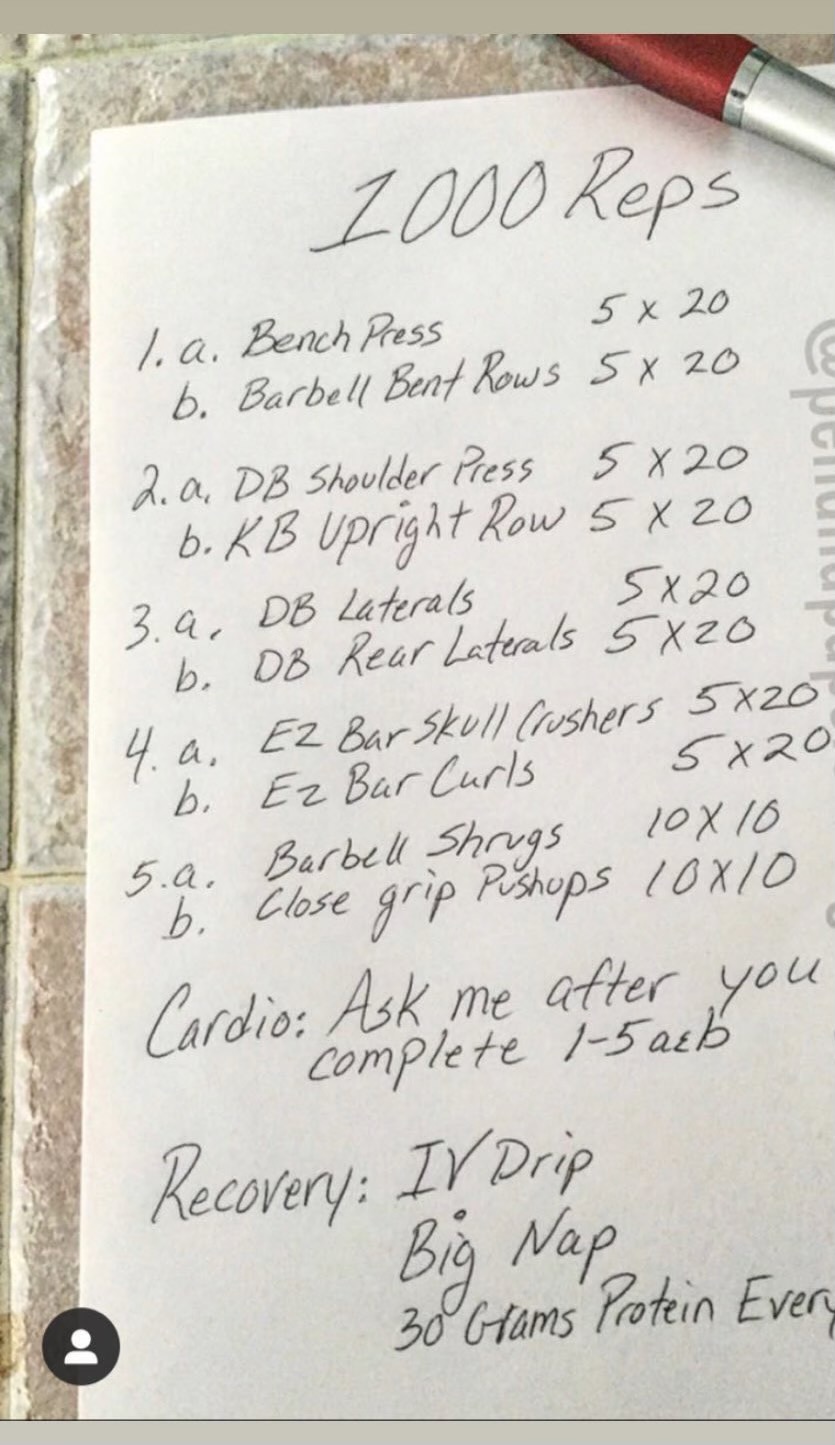 1000 Reps
1. a. Bench Press 5 x 20
b. Barbell Bent Rows 5 x 20
2. a. DB Shoulder Press 5 x 20
b. KB Upright Row 5 x 20
3. a. DB Laterals 5x20
b. DB Rear Laterals 5x20
4. a. EZ Bar Skull Crushers 5x20
b. Ez Bar Curls 5x20
5.a. Barbell Shrugs 10x10
b. Close grip Pushups 10x10
Cardio: Ask me after you
complete 1-5 a&b
Recovery: IV Drip
Big Nap
30 Grams Protein Every